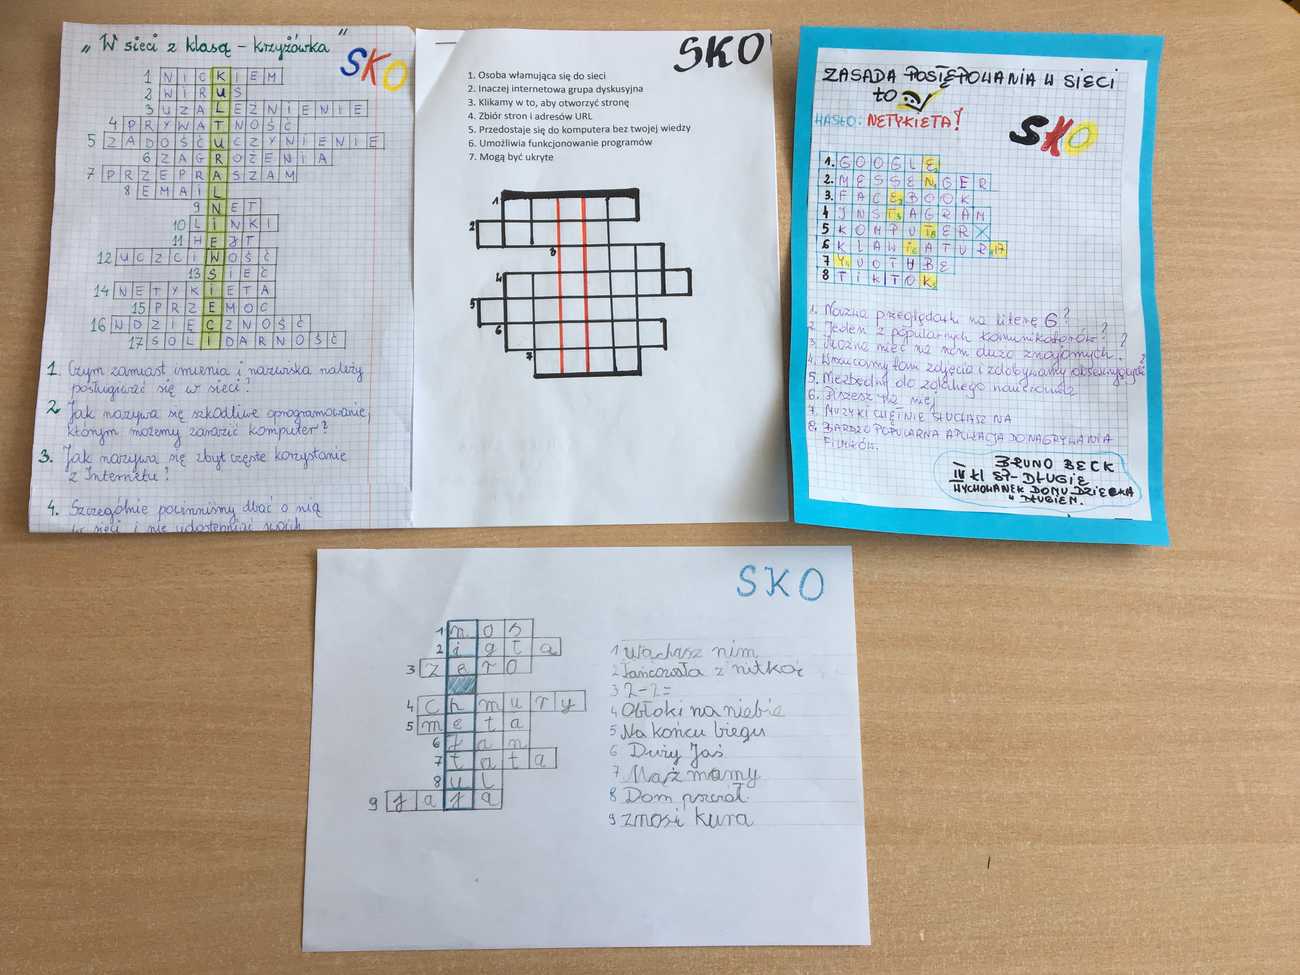 „W sieci z klasą – krzyżówka”
SKO
1 NICKIEM
2 WIRUS
3 UZALEŻNIENIE
4 PRYWATNOŚĆ
5 ZADOŚĆUCZYNIENIE
6 ZAGROŻENIA
7 PRZEPRASZAM
8 EMAIL
9 NET
10 LINKI
11 HEJT
12 UCZCIWOŚĆ
13 SIEĆ
14 NETYKIETA
15 PRZEMOC
16 WDZIĘCZNOŚĆ
17 SOLIDARNOŚĆ
1. Czym zamiast imienia i nazwiska należy
posługiwać się w sieci?
2. Jak nazywa się szkodliwe oprogramowanie,
którym możemy zarazić komputer?
3. Jak nazywa się zbyt częste korzystanie
z Internetu?
4. Szczególnie powinniśmy dbać o nią
w sieci i nie udostępniać swoich
SKO
1. Osoba włamująca się do sieci
2. Inaczej internetowa grupa dyskusyjna
3. Klikamy w to, aby otworzyć stronę
4. Zbiór stron i adresów URL
5. Przedostaje się do komputera bez twojej wiedzy
6. Umożliwia funkcjonowanie programów
7. Mogą być ukryte
1
2
3
4
5
6
7
ZASADA POSTĘPOWANIA W SIECI
TO
HASŁO: NETYKIETA!
SKO
1. GOOGLE
2. MESSENGER
3. FACEBOOK
4 INSTAGRAM
5 KOMPUTER
6 KLAWIATURA
7 YUOTUBE
8 TIKTOK
1. Nazwa przeglądarki na literę G?
2. Jeden z popularnych komunikatorów?
3. Można mieć na nim dużo znajomych?
4. Wrzucamy tam zdjęcia i zdobywamy obserwujących?
5. Niezbędny do zdalnego nauczania
6. Piszesz na niej
7. MUZYKI CHĘTNIE SŁUCHASZ NA
8. BARDZO POPULARNA APLIKACJA DO NAGRYWANIA
FILMÓW.
BRUNO BECK
IV kl SP-DŁUGIE
WYCHOWANEK DOMU DZIECKA
W DŁUGIEM.
SKO
1 nos
2 igła
3 zero
4 chmury
5 meta
6 Jan
7 tata
8 ul
9 jaja
1 Wąchasz nim
2 Tańcowała z nitką
3 2-2=
4 Obłoki na niebie
5 Na końcu biegu
6 Duży Jaś
7 Mąż mamy
8 Dom pszczół
9 Znosi kura